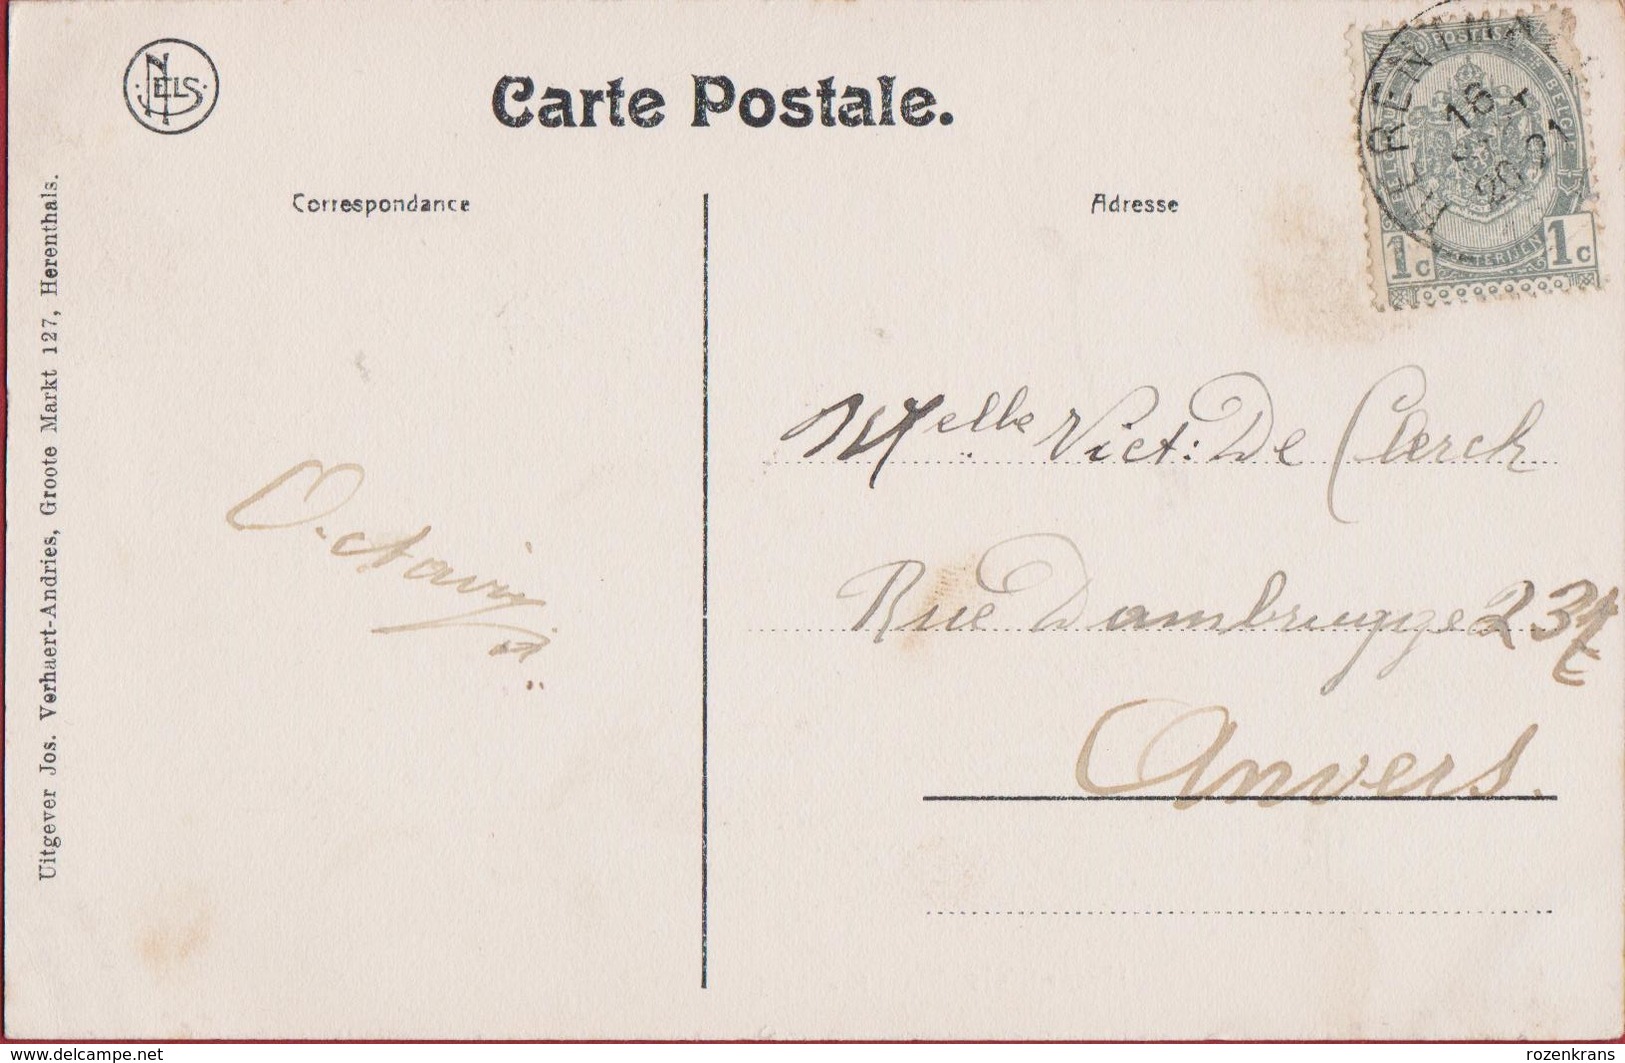 NELS
Carte Postale.
Correspondance
Adresse
HERENTHALS
18
20-21
POSTES
1c
1c
Melle Vict: De Clerck
Rue Dambrugge 237
Anvers.
Octavie
Uitgever Jos. Verhaert-Andries, Groote Markt 127, Herenthals.
www.delcampe.net
rozenkrans